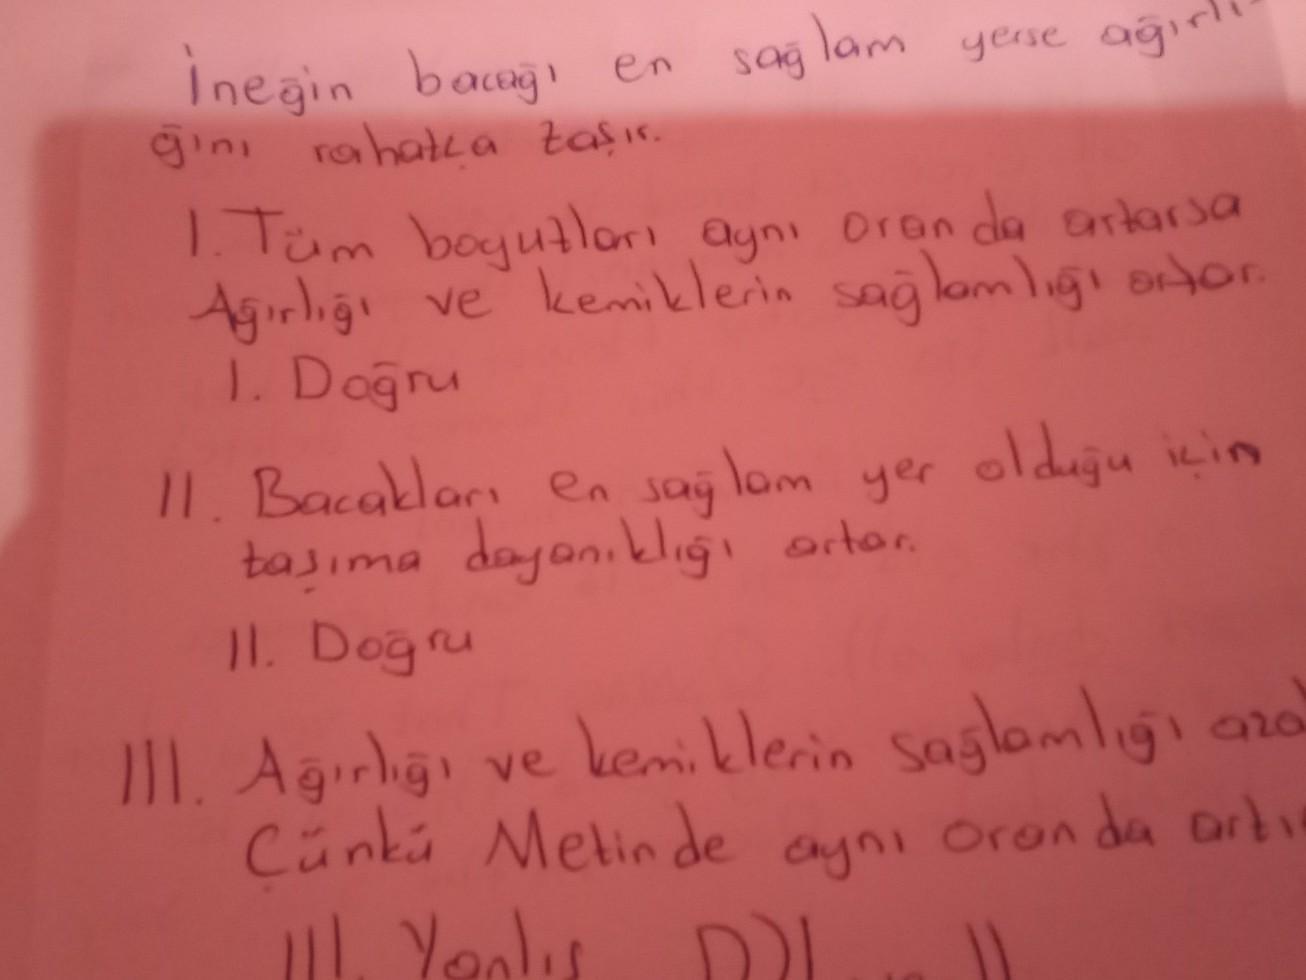 İneğin bacağı en sağlam yerse ağırlı-
ğını rahatça taşır.
I. Tüm boyutları aynı oranda artarsa
Ağırlığı ve kemiklerin sağlamlığı artar.
I. Doğru
II. Bacakları en sağlam yer olduğu için
taşıma dayanıklığı artar.
II. Doğru
III. Ağırlığı ve kemiklerin sağlamlığı
Çünkü Metinde aynı oranda
III. Yanlış D) I II